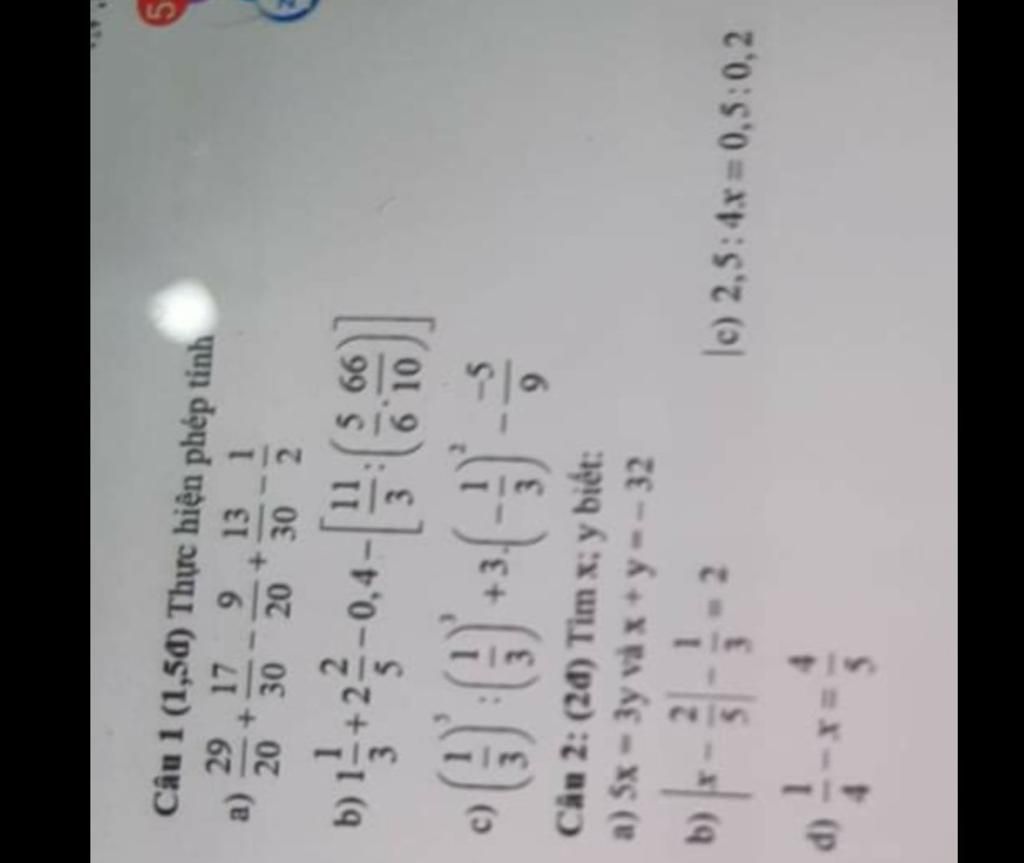 Câu 1 (1,5đ) Thực hiện phép tính
a) 29/20 + 17/30 - 9/20 + 13/30 - 1/2
b) 1 1/3 + 2 2/5 - 0,4 - [11/3 : (5/6 . 66/10)]
c) (1/3)³ : (1/3)³ + 3.(-1/3)² - -5/9
Câu 2: (2đ) Tìm x; y biết:
a) 5x = 3y và x + y = - 32
b) |x - 2/5| - 1/3 = 2
|c) 2,5 : 4x = 0,5 : 0,2
d) 1/4 - x = 4/5